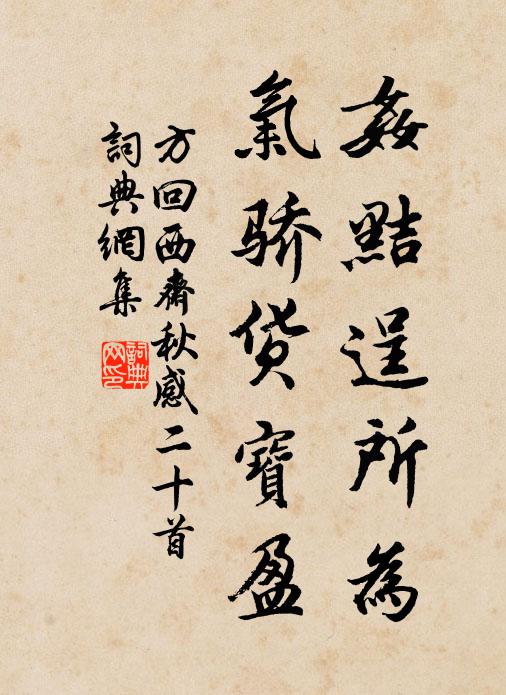 姦黠逞所為
氣骄货寶盈
方回西齋秋感二十首
詞典網集
詞典網印